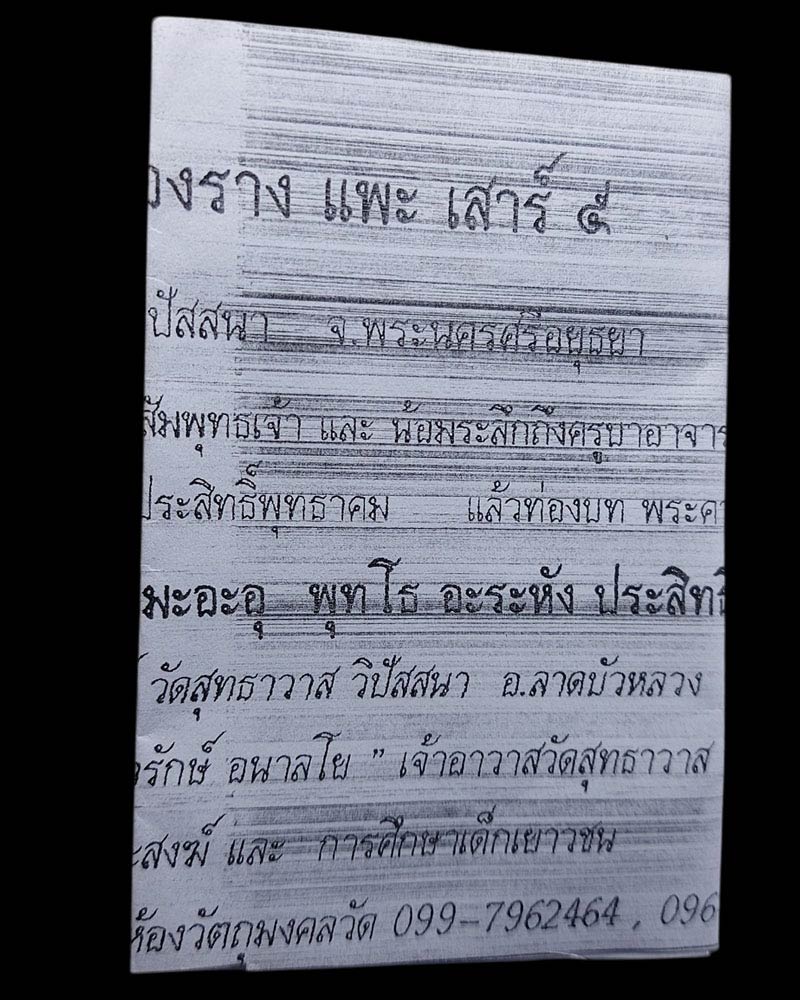 องราง แพะ เสาร์ ๕
ปัสสนา จ.พระนครศรีอยุธยา
สัมพุทธเจ้า และ น้อมระลึกถึงครูบาอาจาร
ประสิทธิ์พุทธาคม แล้วท่องบท พระคา
มะอะอุ พุทโธ อะระหัง ประสิทธิ
วัดสุทธาวาส วิปัสสนา อ.ลาดบัวหลวง
รักษ์ อนาลโย " เจ้าอาวาสวัดสุทธาวาส
ะสงฆ์ และ การศึกษาเด็กเยาวชน
ห้องวัตถุมงคลวัด 099-7962464 , 096